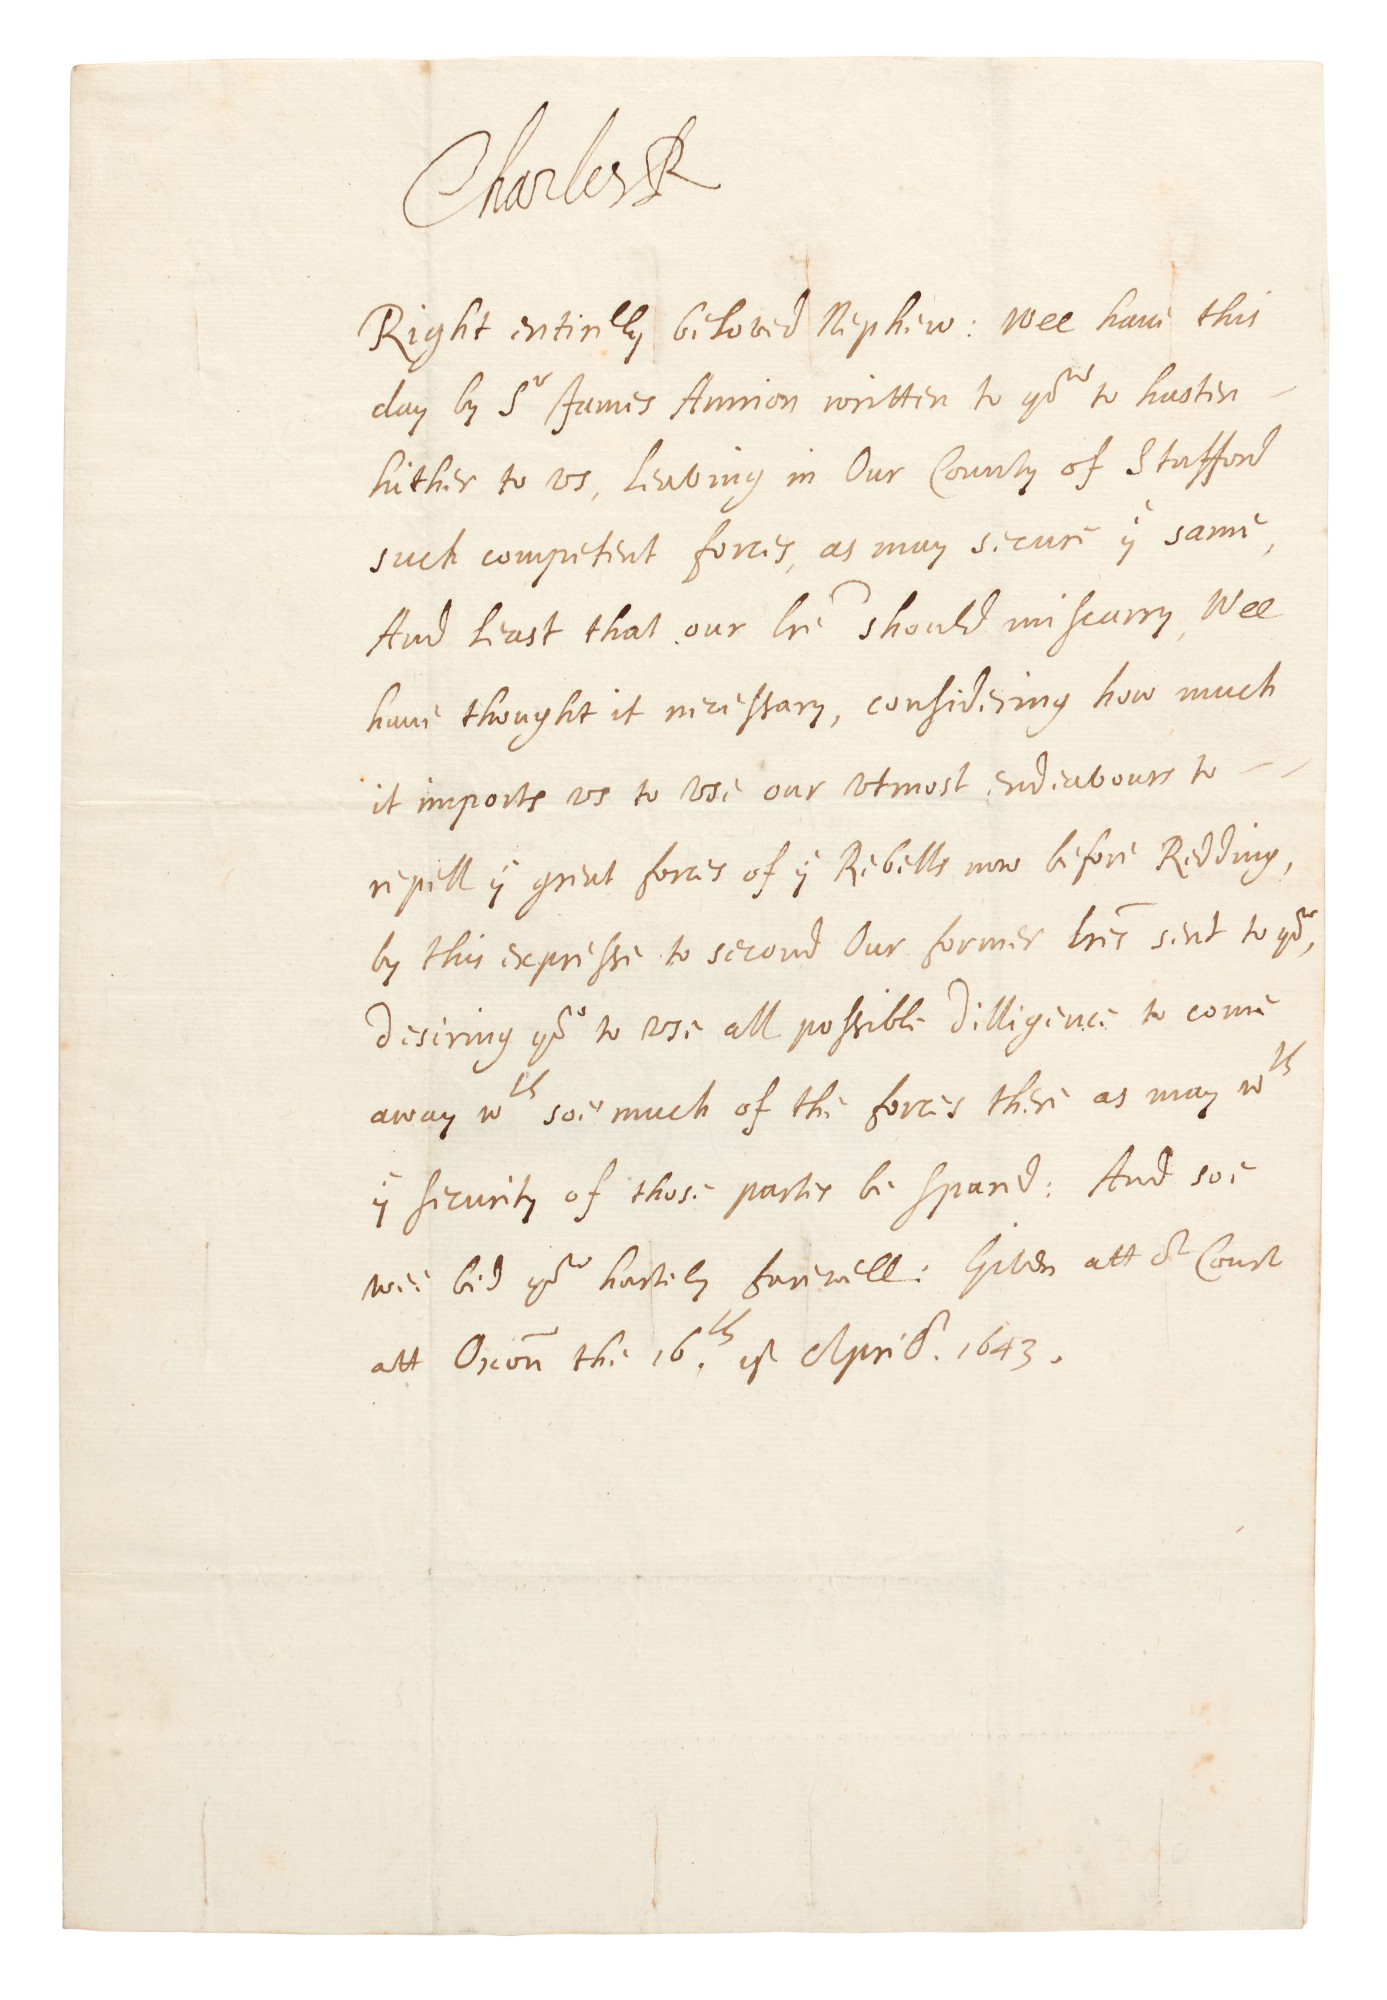 Charles R
Right entirelly beloved Nephew: Wee have this
day by Sr James written to you to hasten
hither to vs, leaving in Our County of Stafford
such competent forces, as may secure ye same,
And least that our lre should miscarry, Wee
have thought it necessary, considering how much
it imports vs to vse our vtmost endeavours to
repell ye great forces of ye Rebells now before Redding,
by this expresse to second Our former lres sent to you,
desiring you to vse all possible dilligence to come
away wth soe much of the forces there as may wth
ye security of those partes be spared: And soe
wee bid you hartily farewell: Given att or Court
att Oxon the 16.th of Aprill. 1643.